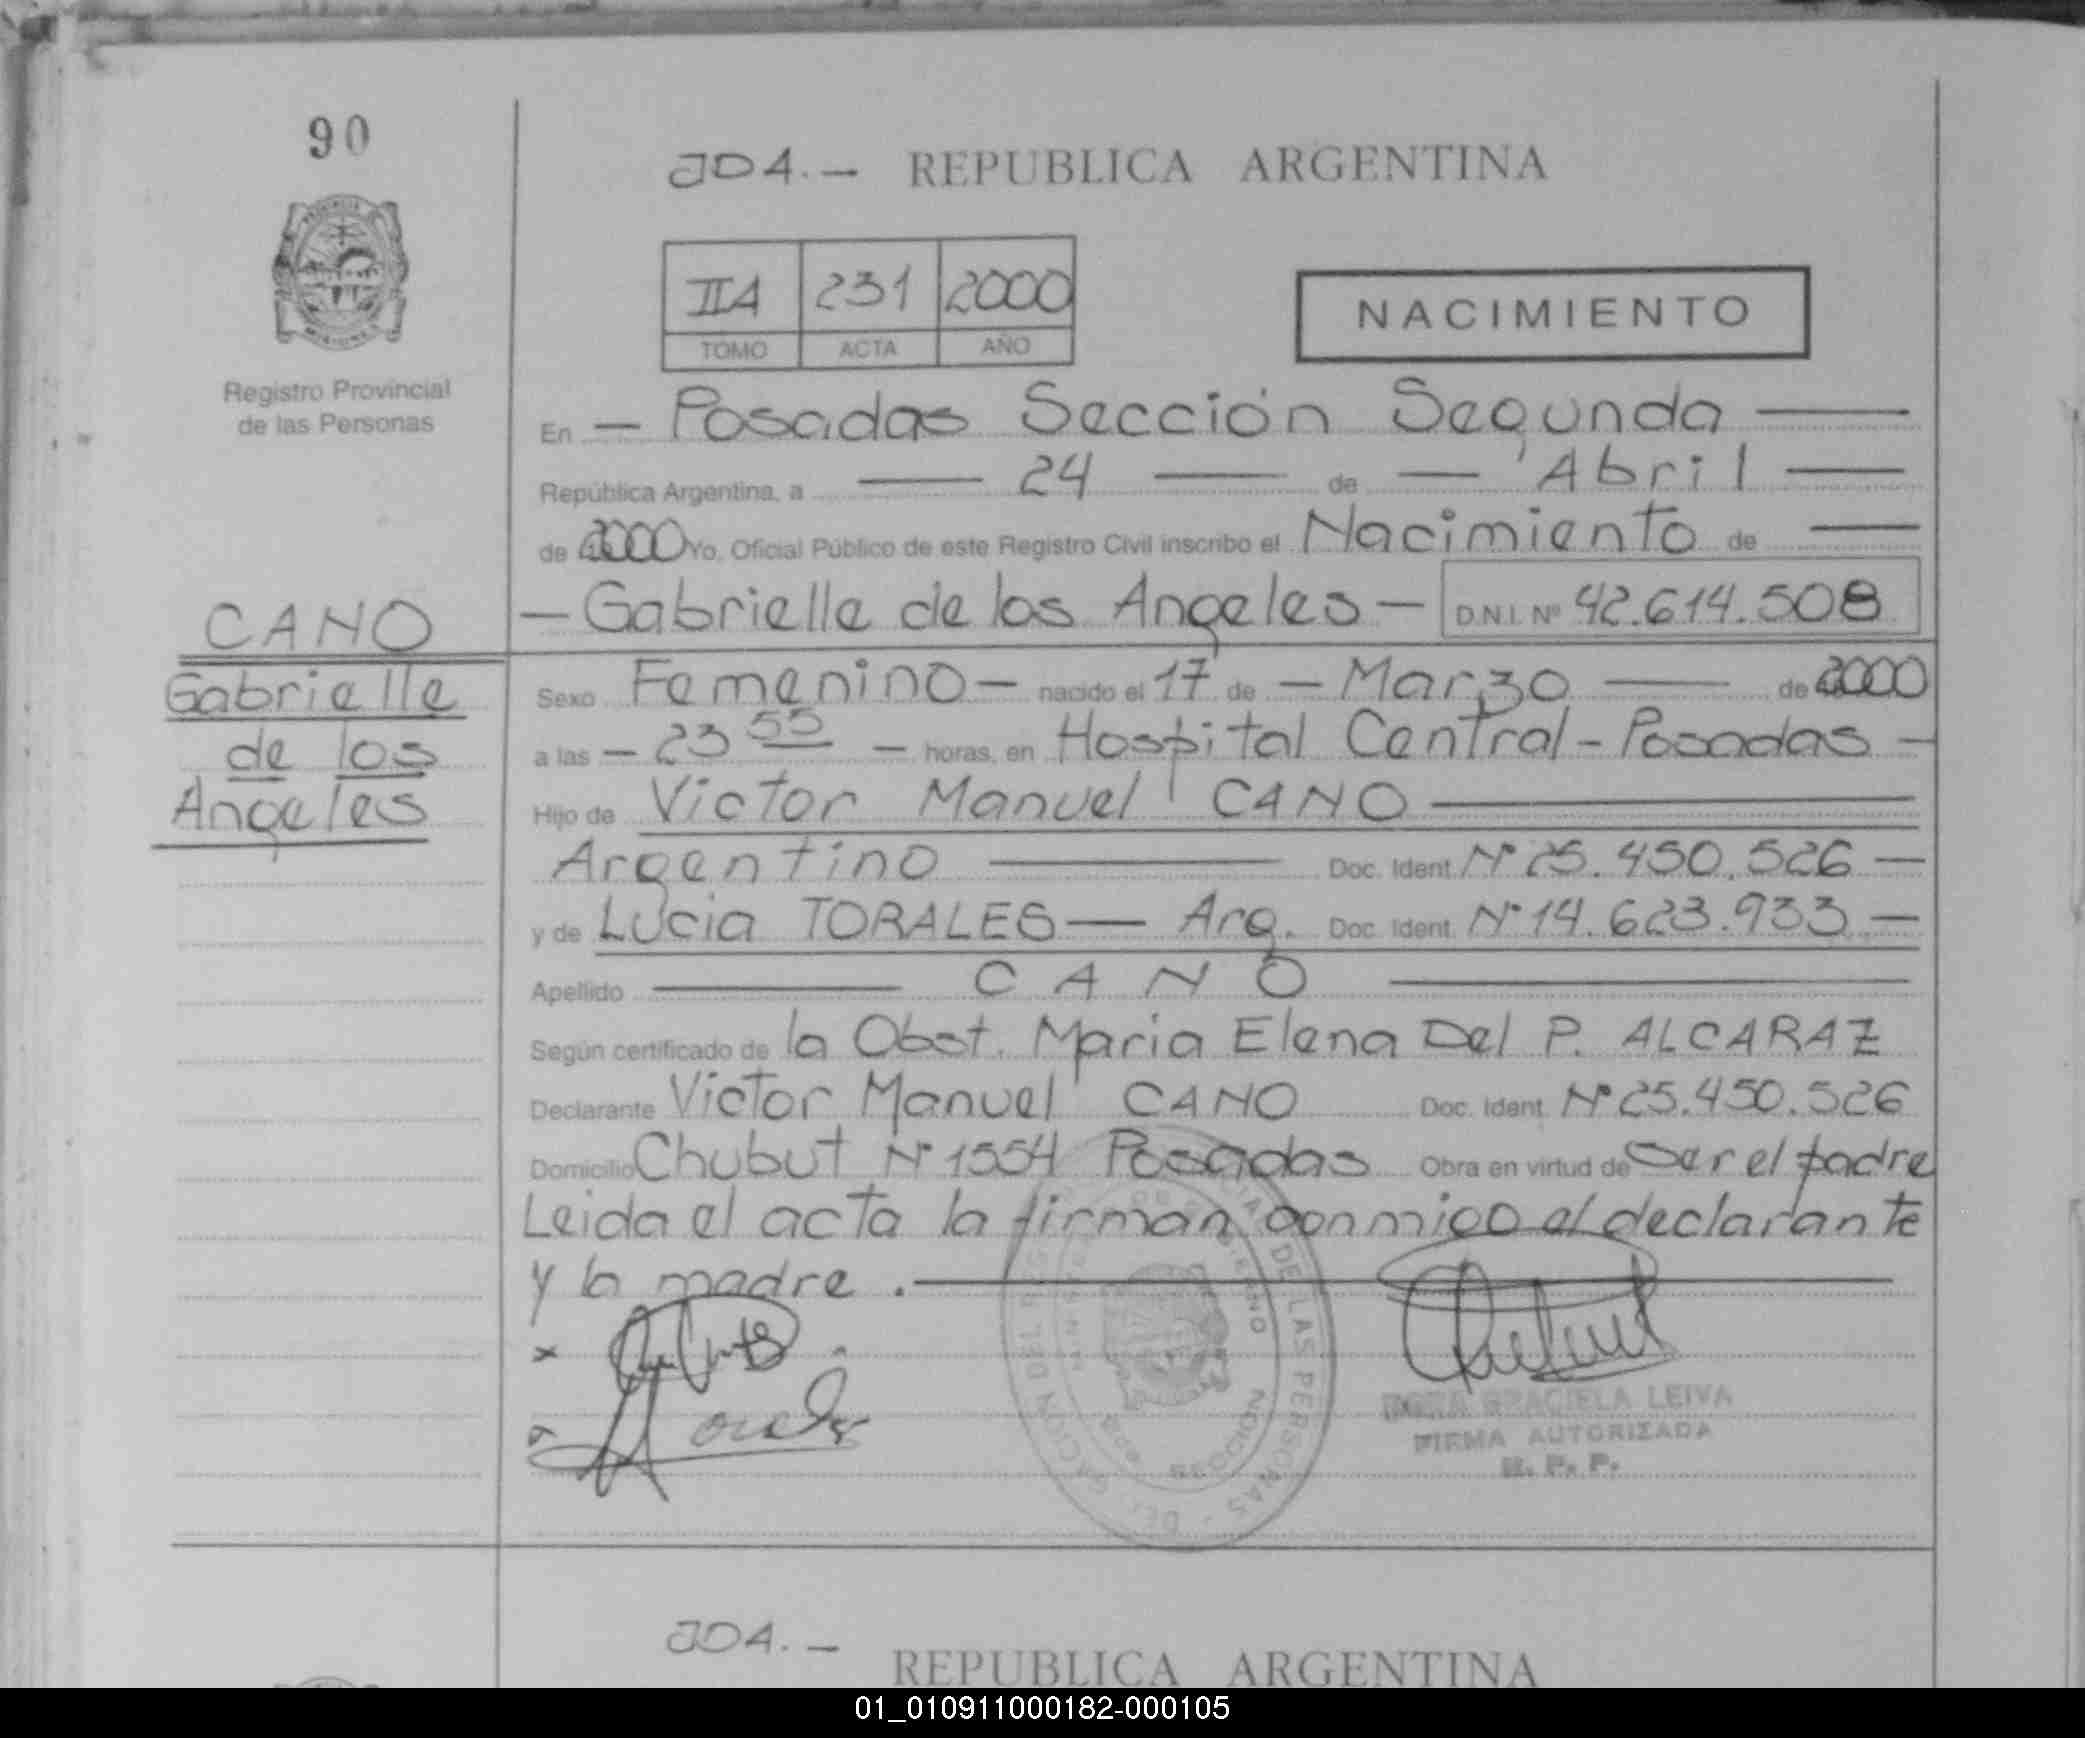 90
JD4.- REPUBLICA ARGENTINA
IIA 231 2000
TOMO ACTA AÑO
NACIMIENTO
Registro Provincial
de las Personas
En - Posadas Sección Segunda -
República Argentina, a - 24 - de - Abril -
de 2000 Yo, Oficial Público de este Registro Civil inscribo el Nacimiento de -
- Gabrielle de los Angeles - D.N.I. Nº 42.614.508
CANO
Gabrielle
de los
Angeles
Sexo Femenino - nacido el 17 de - Marzo - de 2000
a las - 23 55 - horas, en Hospital Central - Posadas -
Hijo de Victor Manuel CANO
Argentino - Doc. Ident. Nº 25.450.526 -
y de Lucia TORALES - Arg. Doc. Ident. Nº 14.623.933 -
Apellido - CANO -
Según certificado de la Obst. Maria Elena Del P. ALCARAZ
Declarante Victor Manuel CANO Doc. Ident. Nº 25.450.526
Domicilio Chubut Nº 1554 Posadas Obra en virtud de Ser el padre
Leida el acta la firman conmigo el declarante
y la madre.
DE LAS PERSONAS
GRACIELA LEIVA
FIRMA AUTORIZADA
R. P. P.
JD4.-
REPUBLICA ARGENTINA
01_010911000182-000105